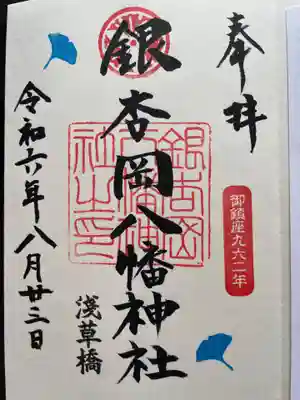 奉拝
御鎮座九六二年
銀杏岡八幡神社
浅草橋
令和六年八月廿三日